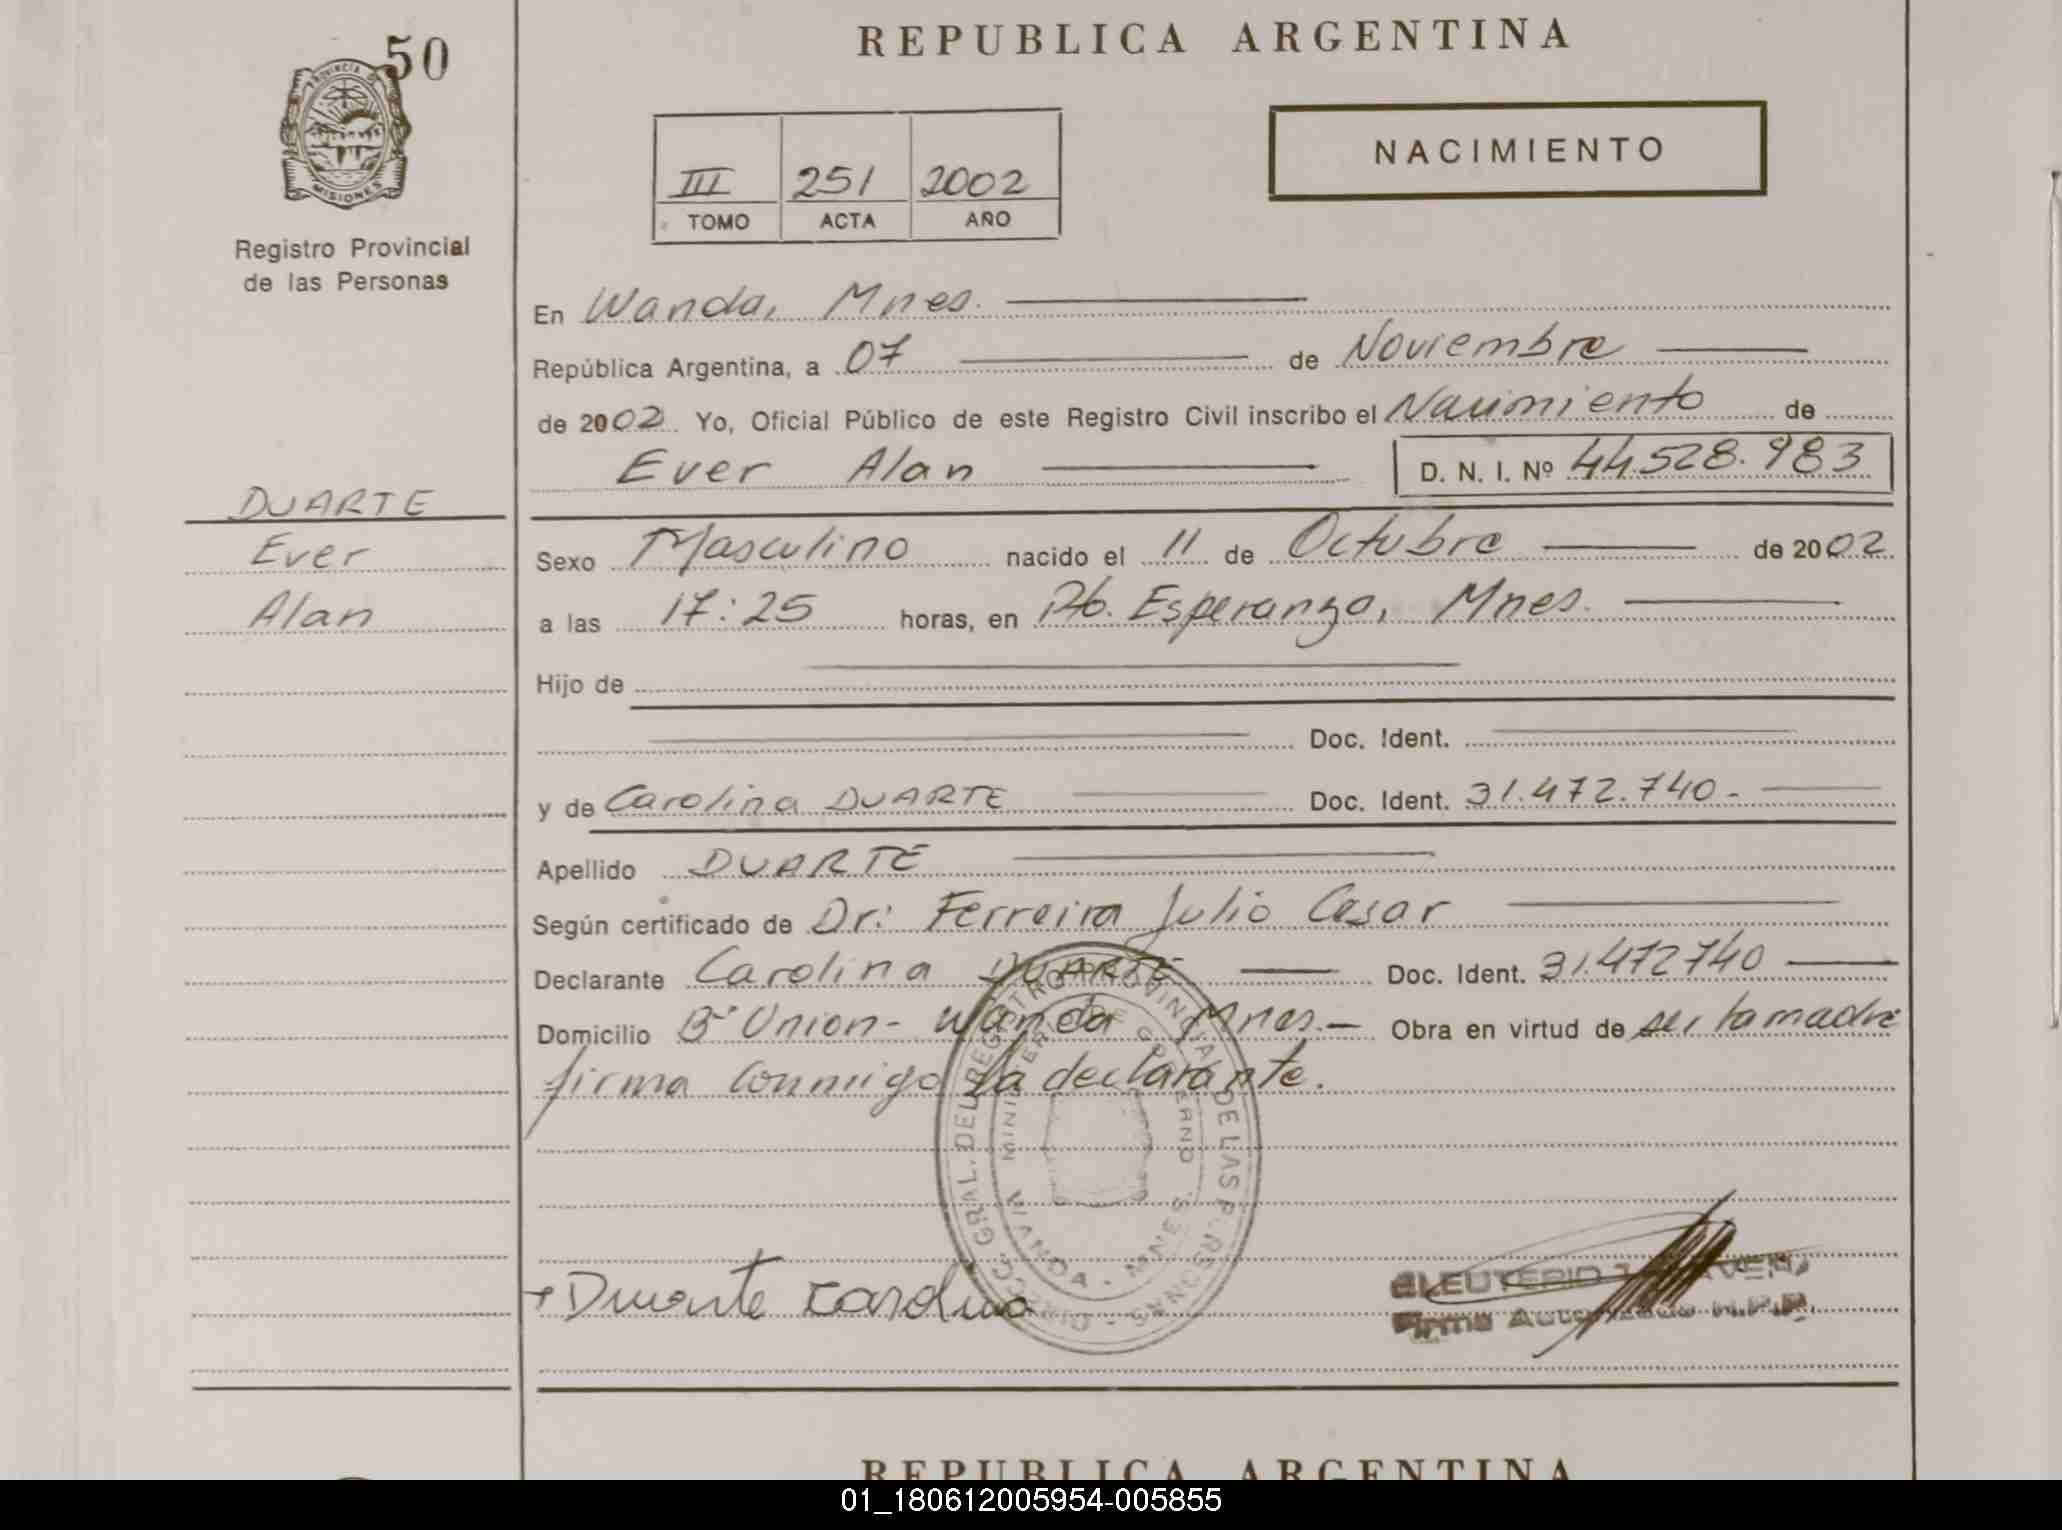 50
PROVINCIA DE
MISIONES
Registro Provincial
de las Personas
DUARTE
Ever
Alan
REPUBLICA ARGENTINA
III 251 2002
TOMO ACTA AÑO
NACIMIENTO
En Wanda, Mnes.
República Argentina, a 07 de Noviembre
de 2002 Yo, Oficial Público de este Registro Civil inscribo el Nacimiento de
Ever Alan D. N. I. Nº 44.528.983
Sexo Masculino nacido el 11 de Octubre de 2002
a las 17:25 horas, en Pto. Esperanza, Mnes.
Hijo de
Doc. Ident.
y de Carolina DUARTE Doc. Ident. 31.472.740.-
Apellido DUARTE
Según certificado de Dr: Ferreira Julio Cesar
Declarante Carolina DUARTE Doc. Ident. 31.472740
Domicilio Bº Union- Wanda Mnes.- Obra en virtud de ser la madre
firma Conmigo La declarante.
DIRECC. GRAL. DEL REGISTRO PROVINCIAL DE LAS PERSONAS
MINISTERIO DE GOBIERNO
WANDA - MNES.
Duarte Carolina
ELEUTERIO
Firma Autorizada R.P.P.
REPUBLICA ARGENTINA
01_180612005954-005855